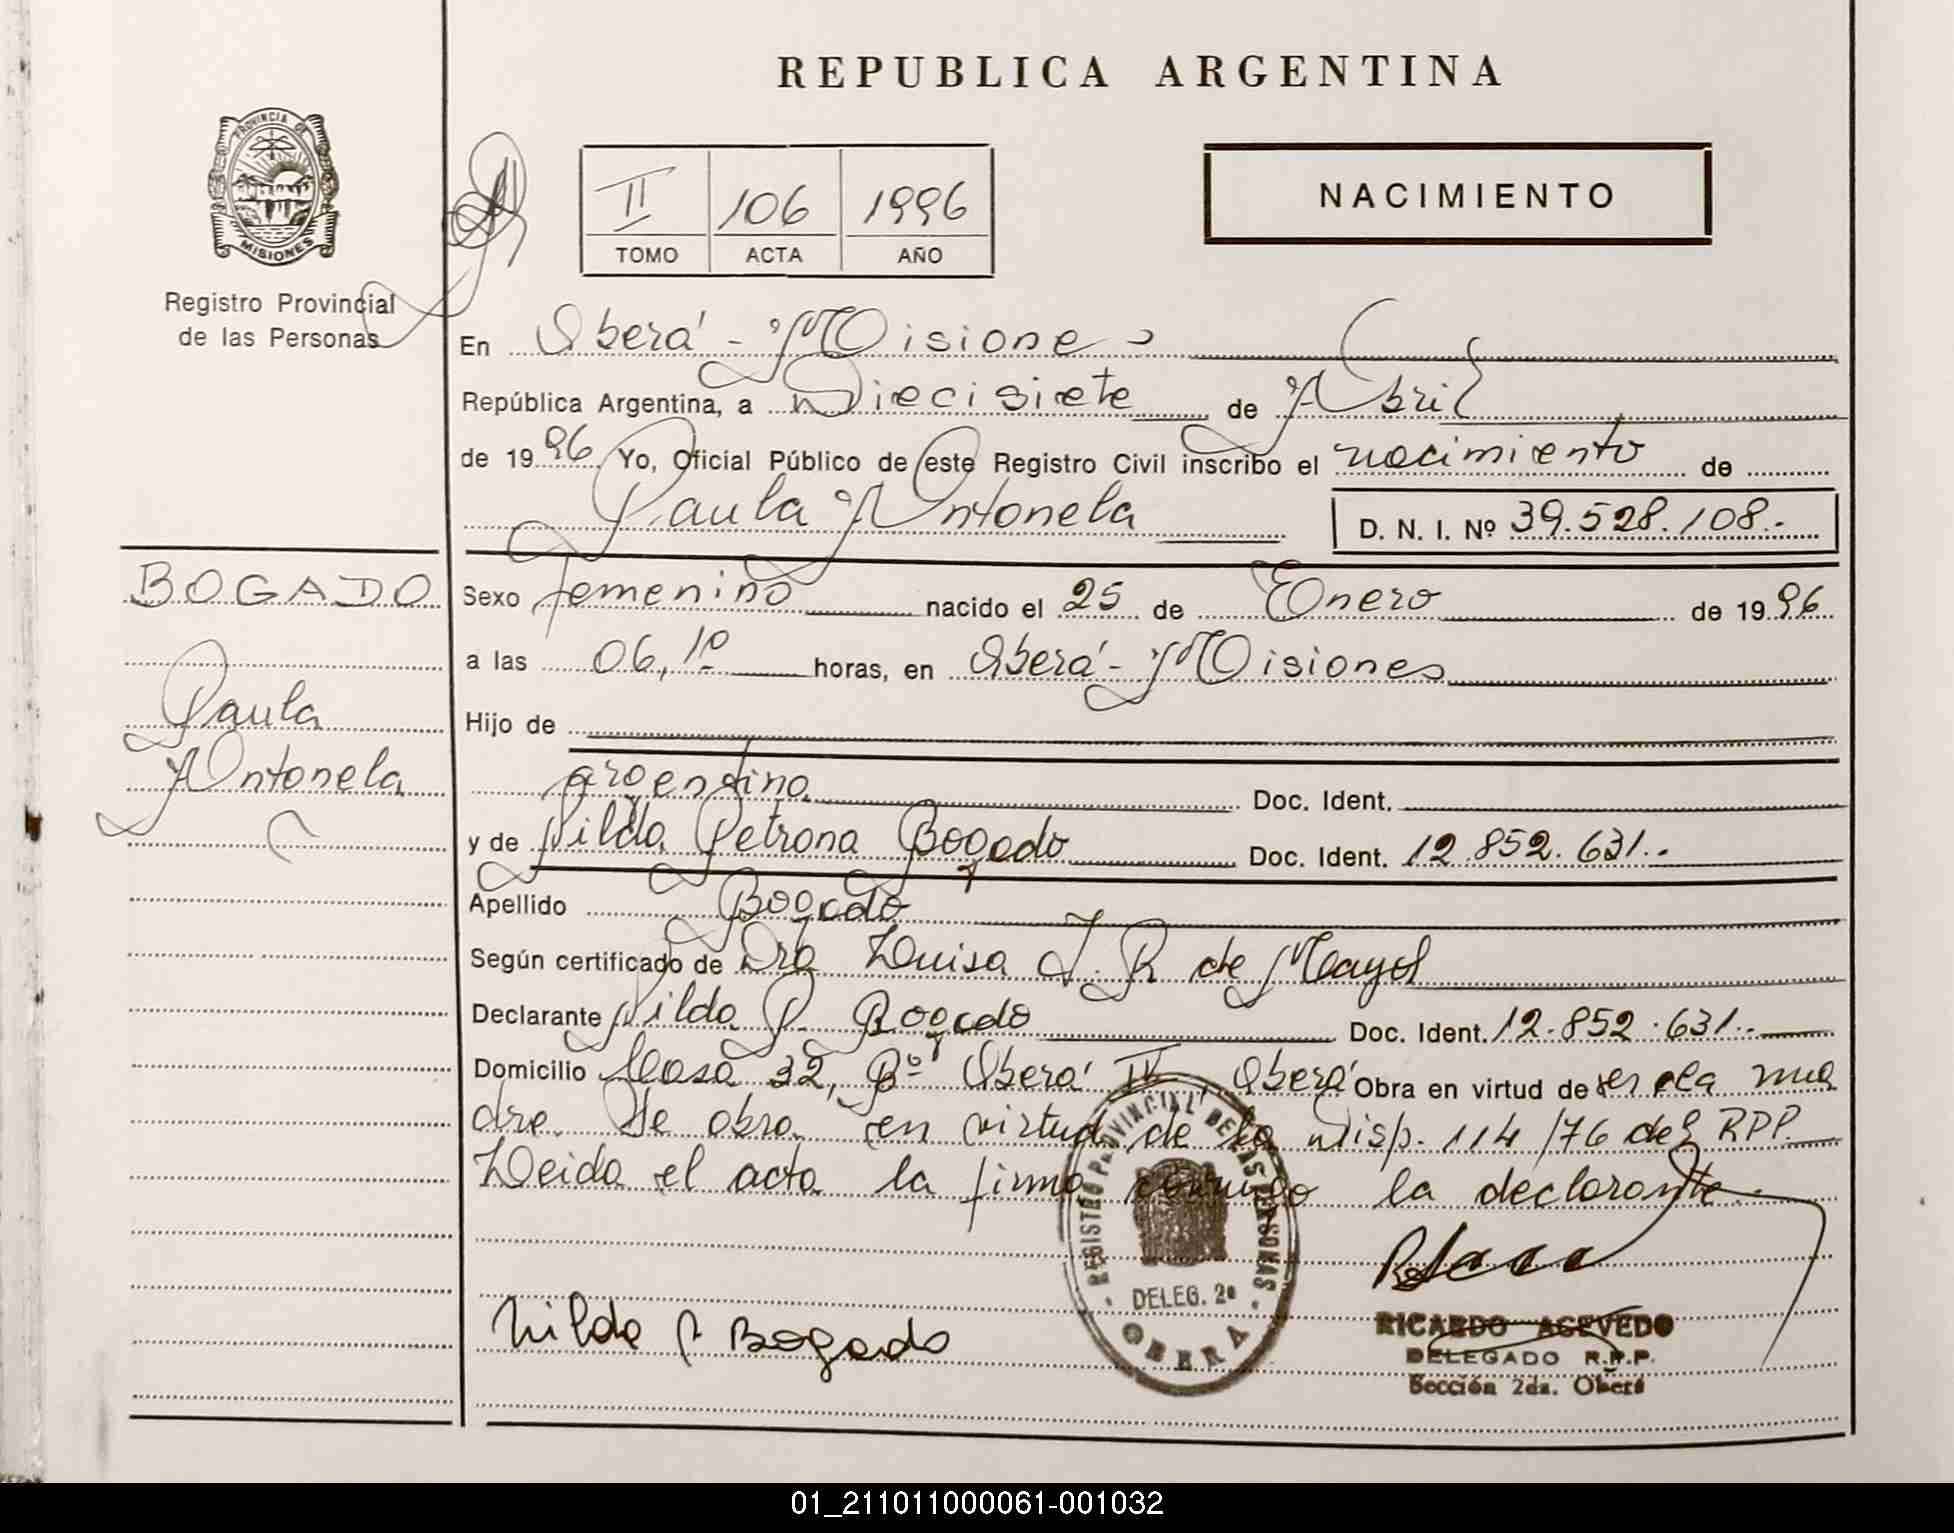 REPUBLICA ARGENTINA
PROVINCIA DE
MISIONES
Registro Provincial
de las Personas
II 106 1996
TOMO ACTA AÑO
NACIMIENTO
En Oberá - Misiones
República Argentina, a Diecisiete de Abril
de 1996 Yo, Oficial Público de este Registro Civil inscribo el nacimiento de
Paula Antonela
D. N. I. Nº 39.528.108.-
BOGADO
Paula
Antonela
Sexo femenino nacido el 25 de Enero de 1996
a las 06,10 horas, en Oberá - Misiones
Hijo de
argentina Doc. Ident.
y de Nilda Petrona Bogado Doc. Ident. 12.852.631.-
Apellido Bogado
Según certificado de Dra Luisa J. R de Mayol
Declarante Nilda P. Bogado Doc. Ident. 12.852.631.-
Domicilio Casa 32, Bº Oberá II, Oberá Obra en virtud de ser la ma
dre. Se obra en virtud de la Disp. 114/76 del RPP.
Leida el acta la firma conmigo la declarante.
REGISTRO PROVINCIAL DE LAS PERSONAS
DELEG. 2ª
OBERA
Nilda P Bogado
RICARDO ACEVEDO
DELEGADO R.P.P.
Sección 2da. Oberá
01_211011000061-001032